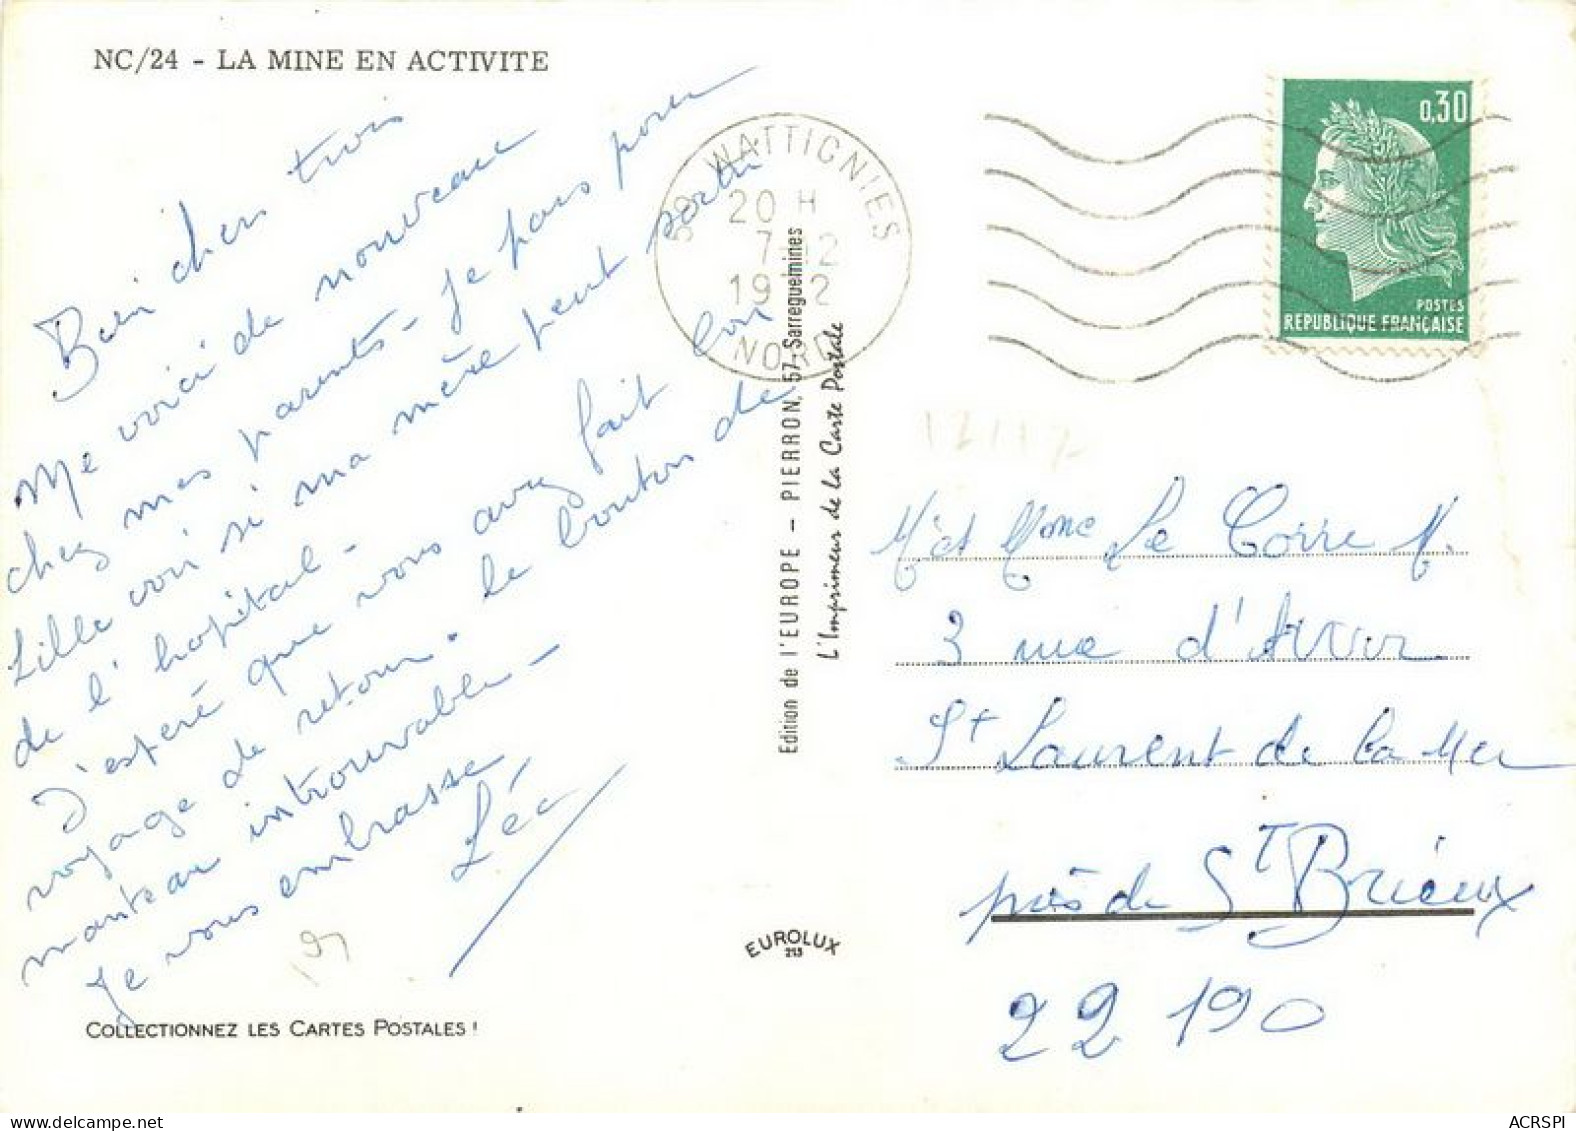 NC/24 - LA MINE EN ACTIVITE
Bien chers trois
Me voici de nouveau
chez mes parents - Je pars pour
Lille voir si ma mère peut sortir
de l'hopital -
J'esperé que vous avez fait bon
voyage de retour. le bouton de
manteau introuvable -
Je vous embrasse
Léa
COLLECTIONNEZ LES CARTES POSTALES !
59 WATTIGNIES
20 H
7-12
19 2
NORD
0,30
POSTES
REPUBLIQUE FRANÇAISE
Edition de l'EUROPE - PIERRON, 57-Sarreguemines
L'Imprimeur de la Carte Postale
EUROLUX
213
M et Mme Le Corre M.
3 rue d'Arvor
St Laurent de la Mer
près de St Brieux
22 190
ACRSPI